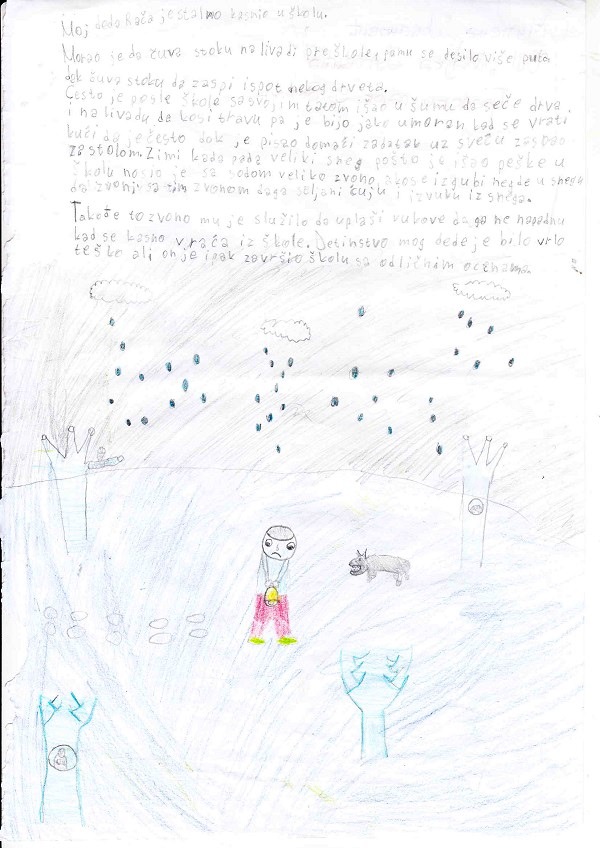 Moj deda Rača je stalno kasnio u školu.
Morao je da čuva stoku na livadi pre škole, i jamu se desilo više puta
dok čuva stoku da zaspi ispot nekog drveta.
Često je posle škole sa svojim tatom išao u šumu da seče drva
i na livadu da kosi travu pa je bijo jako umoran kad se vrati
kući da je često dok je pisao domaći zadatak uz sveću zaspao
za stolom. Zimi kada pada veliki sneg pošto je išao peške u
školu nosio je sa sobom veliko zvono, ako se izgubi negde u snegu
da zvoni sa tim zvonom da ga seljani čuju i izvuku iz snega.
Takođe to zvono mu je služilo da uplaši vukove da ga ne napadnu
kad se kasno vraća iz škole. Detinstvo mog dede je bilo vrlo
teško ali on je ipak završio školu sa odličnim ocenama.